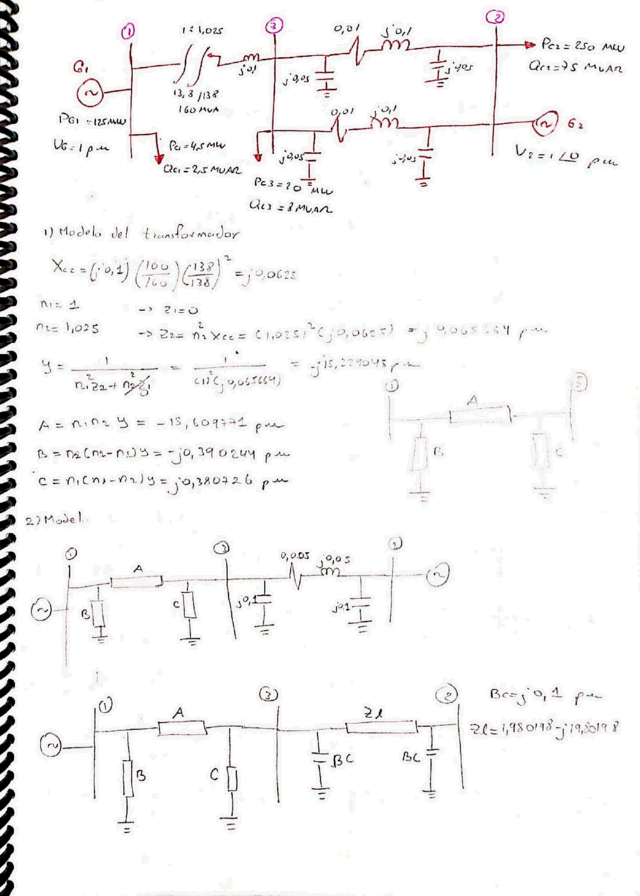 ① 1:1,025 ③ 0,01 j0,1 ②
G1 j0,1 j0,05 j0,05 Pc2=250 MW
Qc2=75 MVAR
13,8/138
160 MVA
PG1=125MW Pc1=4,5MW 0,01 j0,1 G2
VG=1 p.u Qc1=2,5MVAR j0,05 j0,05 V2=1∠0 p.u
Pc3=20 MW
Qc3=8MVAR
1) Modelo del transformador
Xcc=(j0,1)(100/160)(138/138)²=j0,0625
n1=1 → Z1=0
n2=1,025 → Z2=n2² Xcc=(1,025)²(j0,0625)=j0,065664 p.u
y=1/(n1²Z2+n2²Z1)=1/((1)²(j0,065664))=-j15,229043 p.u
① A ③
B C
A=n1n2 y=-15,609771 p.u
B=n2(n2-n1)y=-j0,390244 p.u
C=n1(n1-n2)y=j0,380726 p.u
2) Model
① A ③ 0,005 j0,05 ②
B C j0,1 j0,1
① A ③ Zl ② Bc=j0,1 p.u
B C BC BC Zl=1,980198-j19,80198